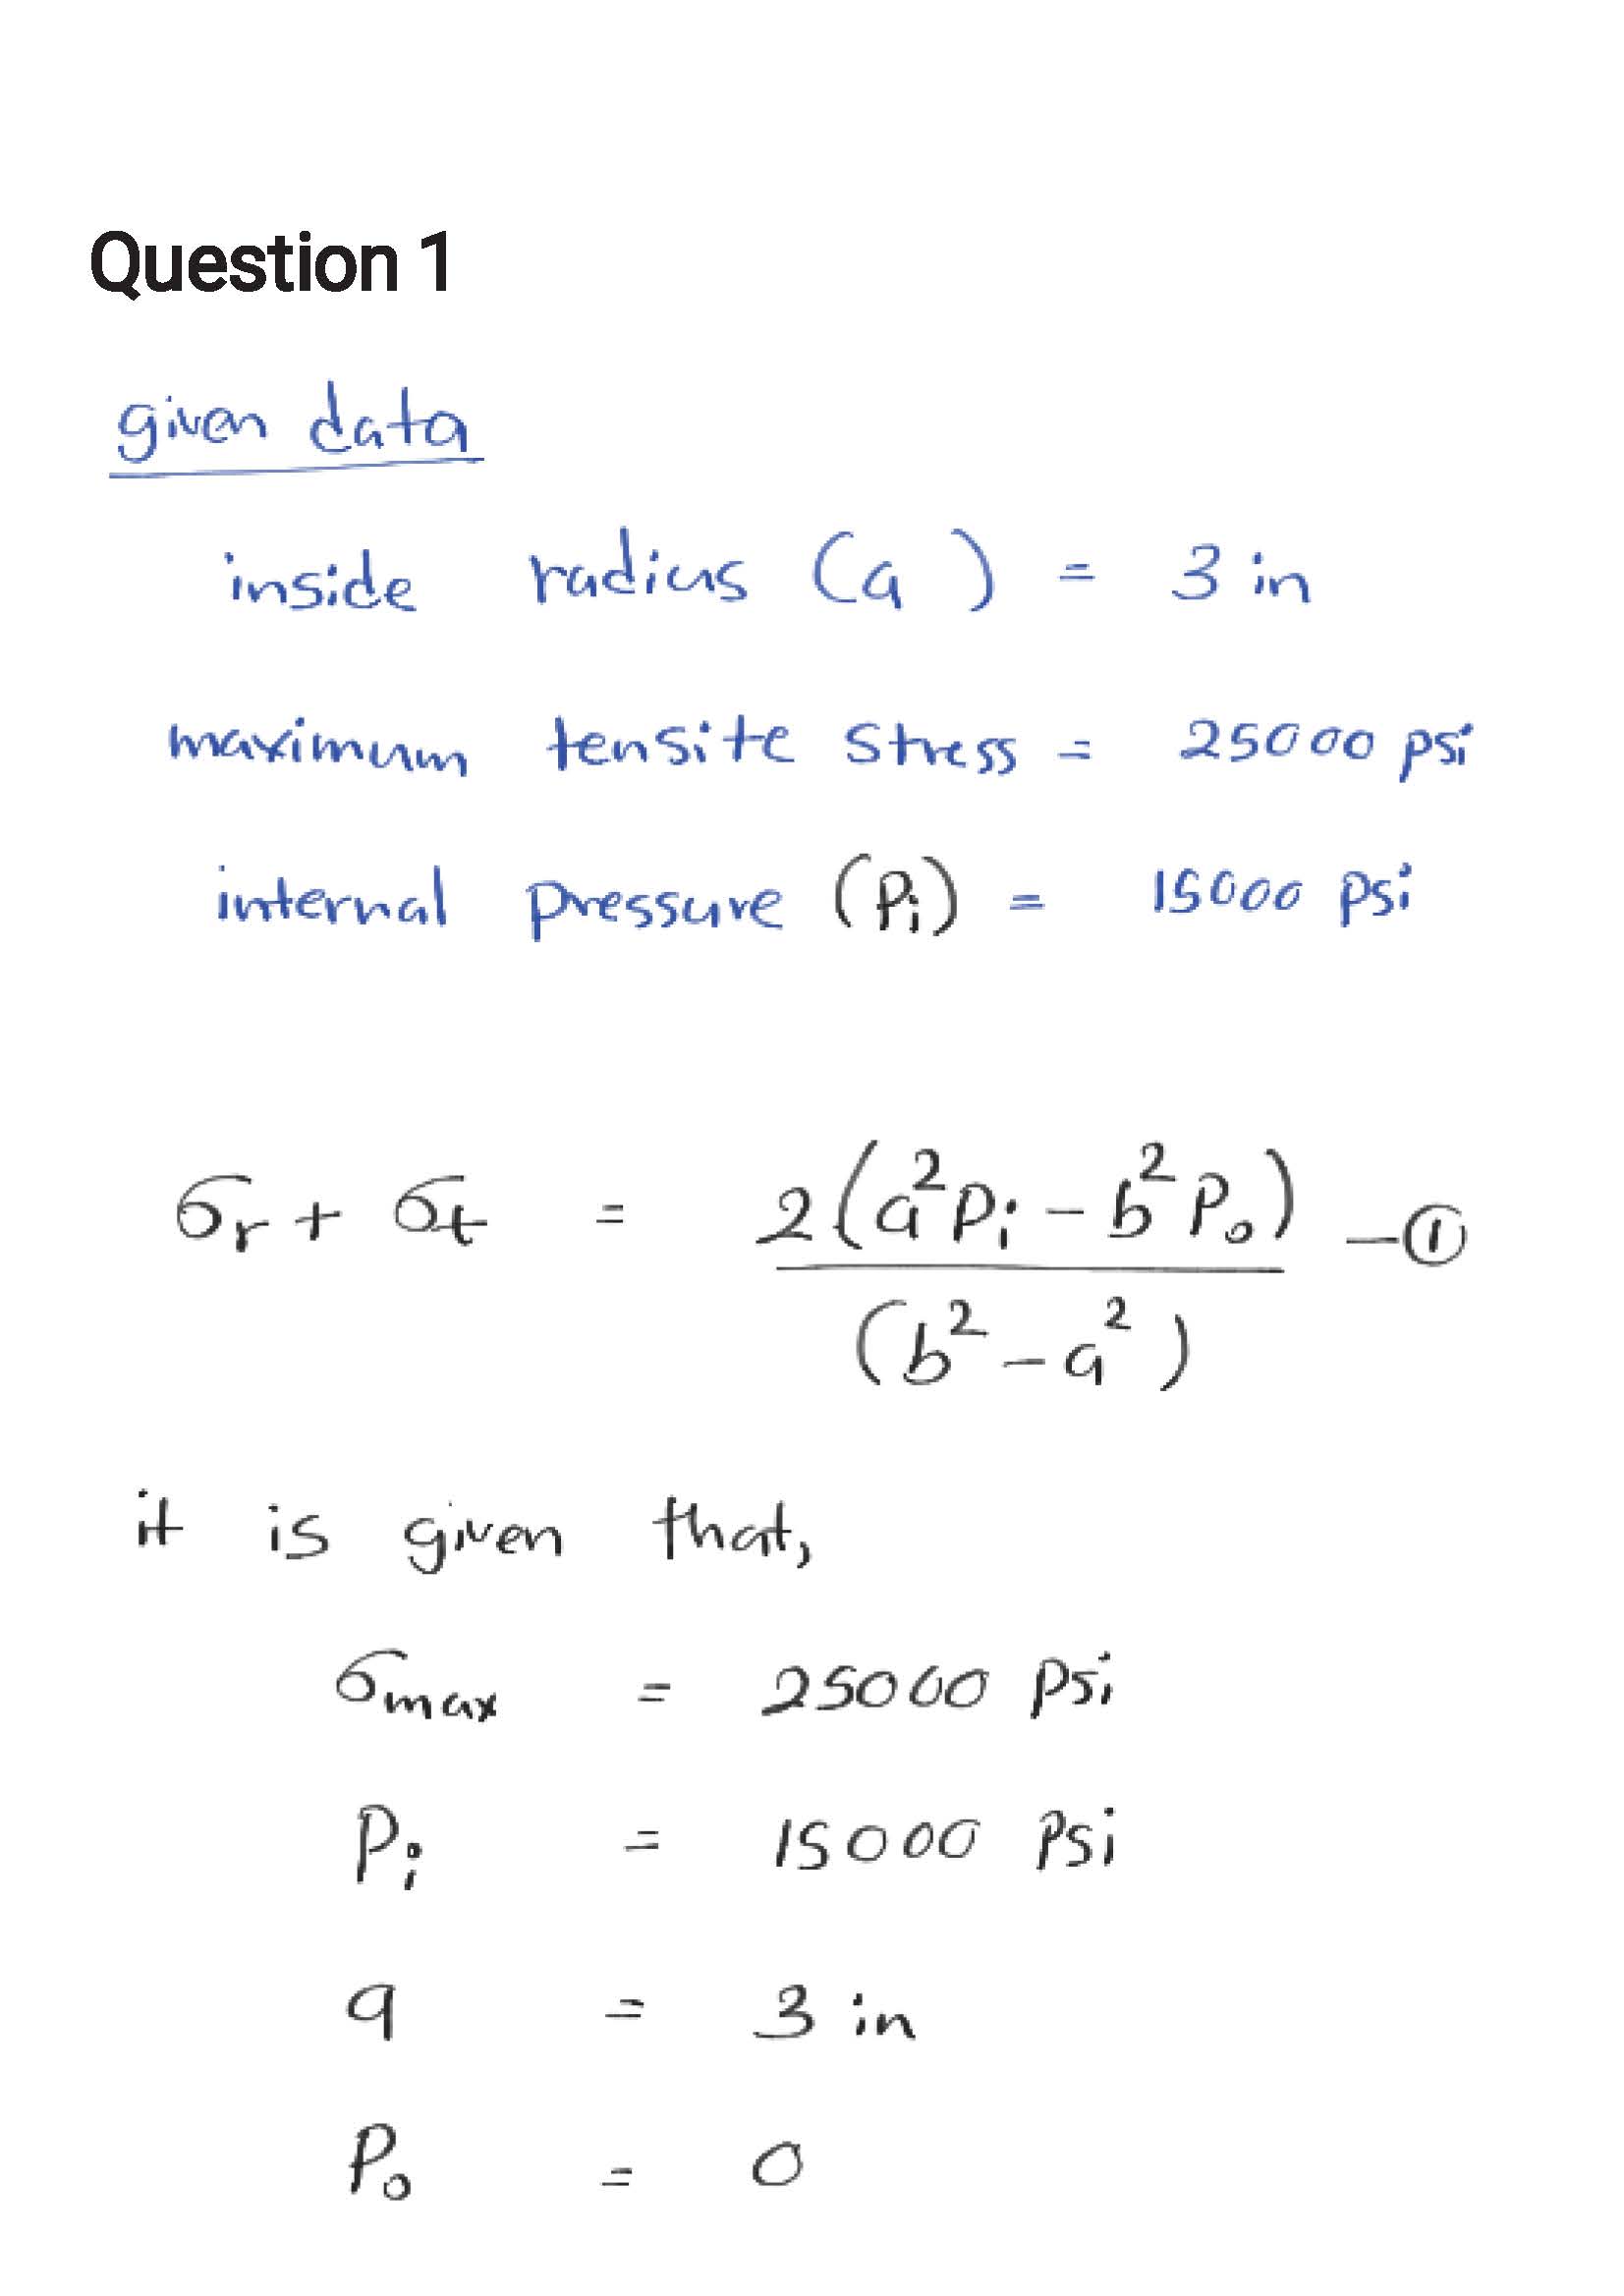 Question 1
given data
inside radius (a) = 3 in
maximum tensite stress = 25000 psi
internal pressure (Pi) = 15000 psi
σr + σt = 2(a²Pi - b²Po) / (b² - a²) - ①
it is given that,
σmax = 25000 psi
Pi = 15000 psi
a = 3 in
Po = 0